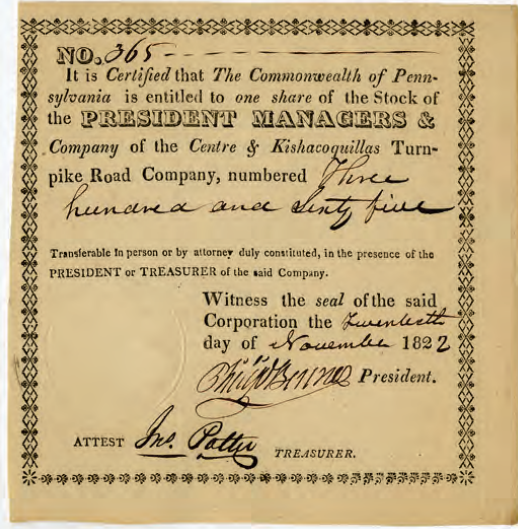 NO. 365
It is Certified that The Commonwealth of Penn-
sylvania is entitled to one share of the Stock of
the PRESIDENT MANAGERS &
Company of the Centre & Kishacoquillas Turn-
pike Road Company, numbered Three
hundred and Sixty five
Transferable in person or by attorney duly constituted, in the presence of the
PRESIDENT or TREASURER of the said Company.
Witness the seal of the said
Corporation the twentieth
day of November 1822
Philip Benner President.
ATTEST Jno. Potter TREASURER.